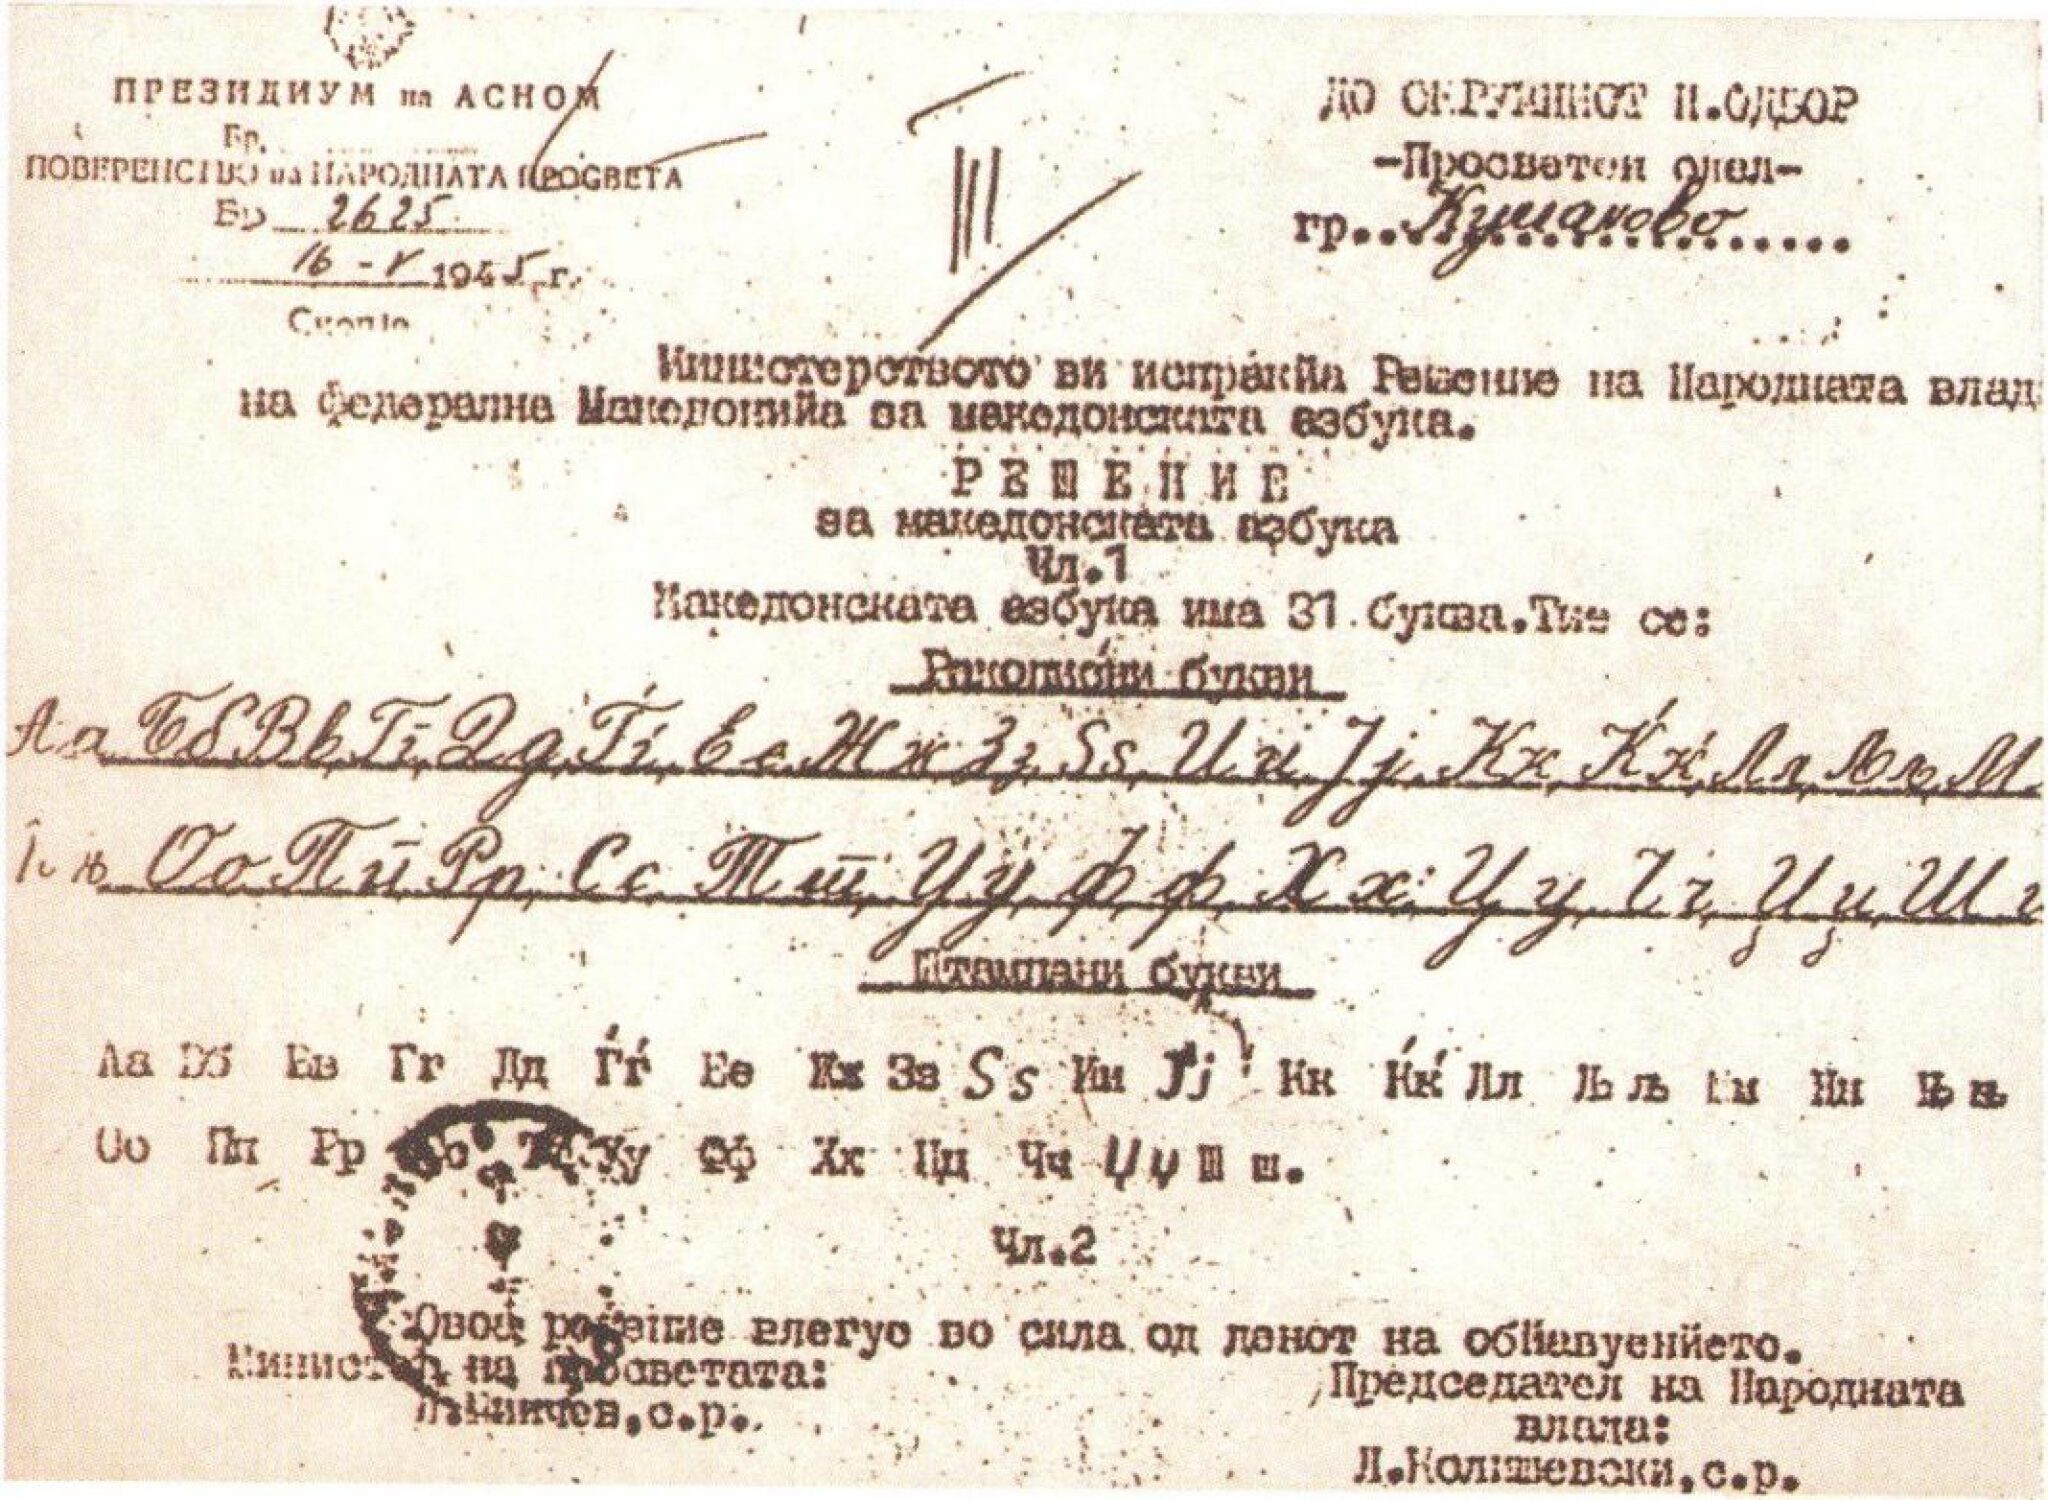 ПРЕЗИДИУМ на АСНОМ
Бр.
ПОВЕРЕНСТВО на НАРОДНАТА ПРОСВЕТА
Бр 2625
16-V 1945 г.
Скопје
ДО ОКРУЖНИОТ Н.ОДБОР
-Просветен одел-
гр..Куманово
III
Министерството ви испракйа Решение на Народната влад
на федерална Македонийа за македонската азбука.
РЕШЕНИЕ
за македонската азбука
Чл.1
Македонската азбука има 31 буква.Тие се:
Ракописни букви
Аа Бб Вв Гг Дд Ѓѓ Ее Жж Зз Ѕѕ Ии Јј Кк Ќќ Лл Љљ М
њ Оо Пп Рр Сс Тт Уу Фф Хх Цц Чч Џџ Ш
Штампани букви
Аа Бб Вв Гг Дд Ѓѓ Ее Жж Зз Ѕѕ Ии Јј Кк Ќќ Лл Љљ Мм Нн Њњ
Оо Пп Рр Тт Уу Фф Хх Цц Чч Џџ Шш.
Чл.2
Овоа решение влегуе во сила од денот на обйавуенйето.
Министер на просветата:
Председател на Народната
влада:
Л.Колишевски,с.р.